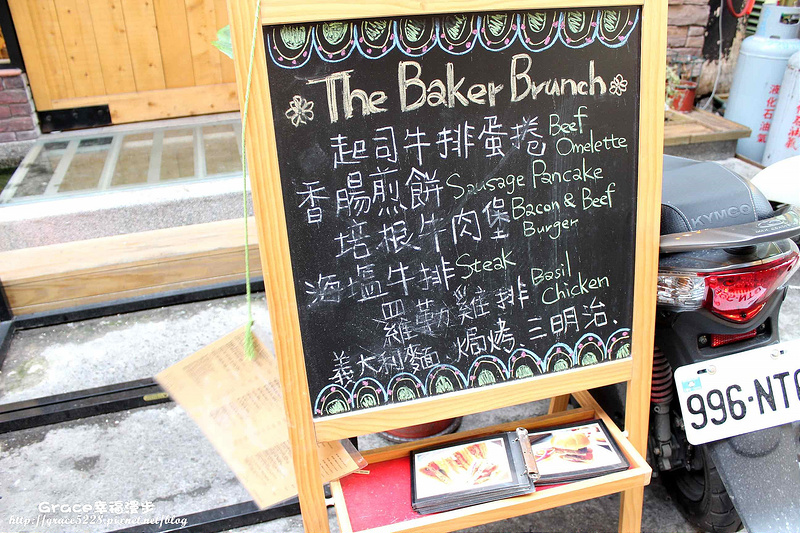 The Baker Brunch
起司牛排蛋捲 Beef Omelette
香腸煎餅 Sausage Pancake
培根牛肉堡 Bacon & Beef Burger
海塩牛排 Steak
羅勒雞排 Basil Chicken
義大利麵、焗烤、三明治、
KYMCO
996-NT
液化石油氣
Grace幸福漫步
http://grace5228.pixnet.net/blog